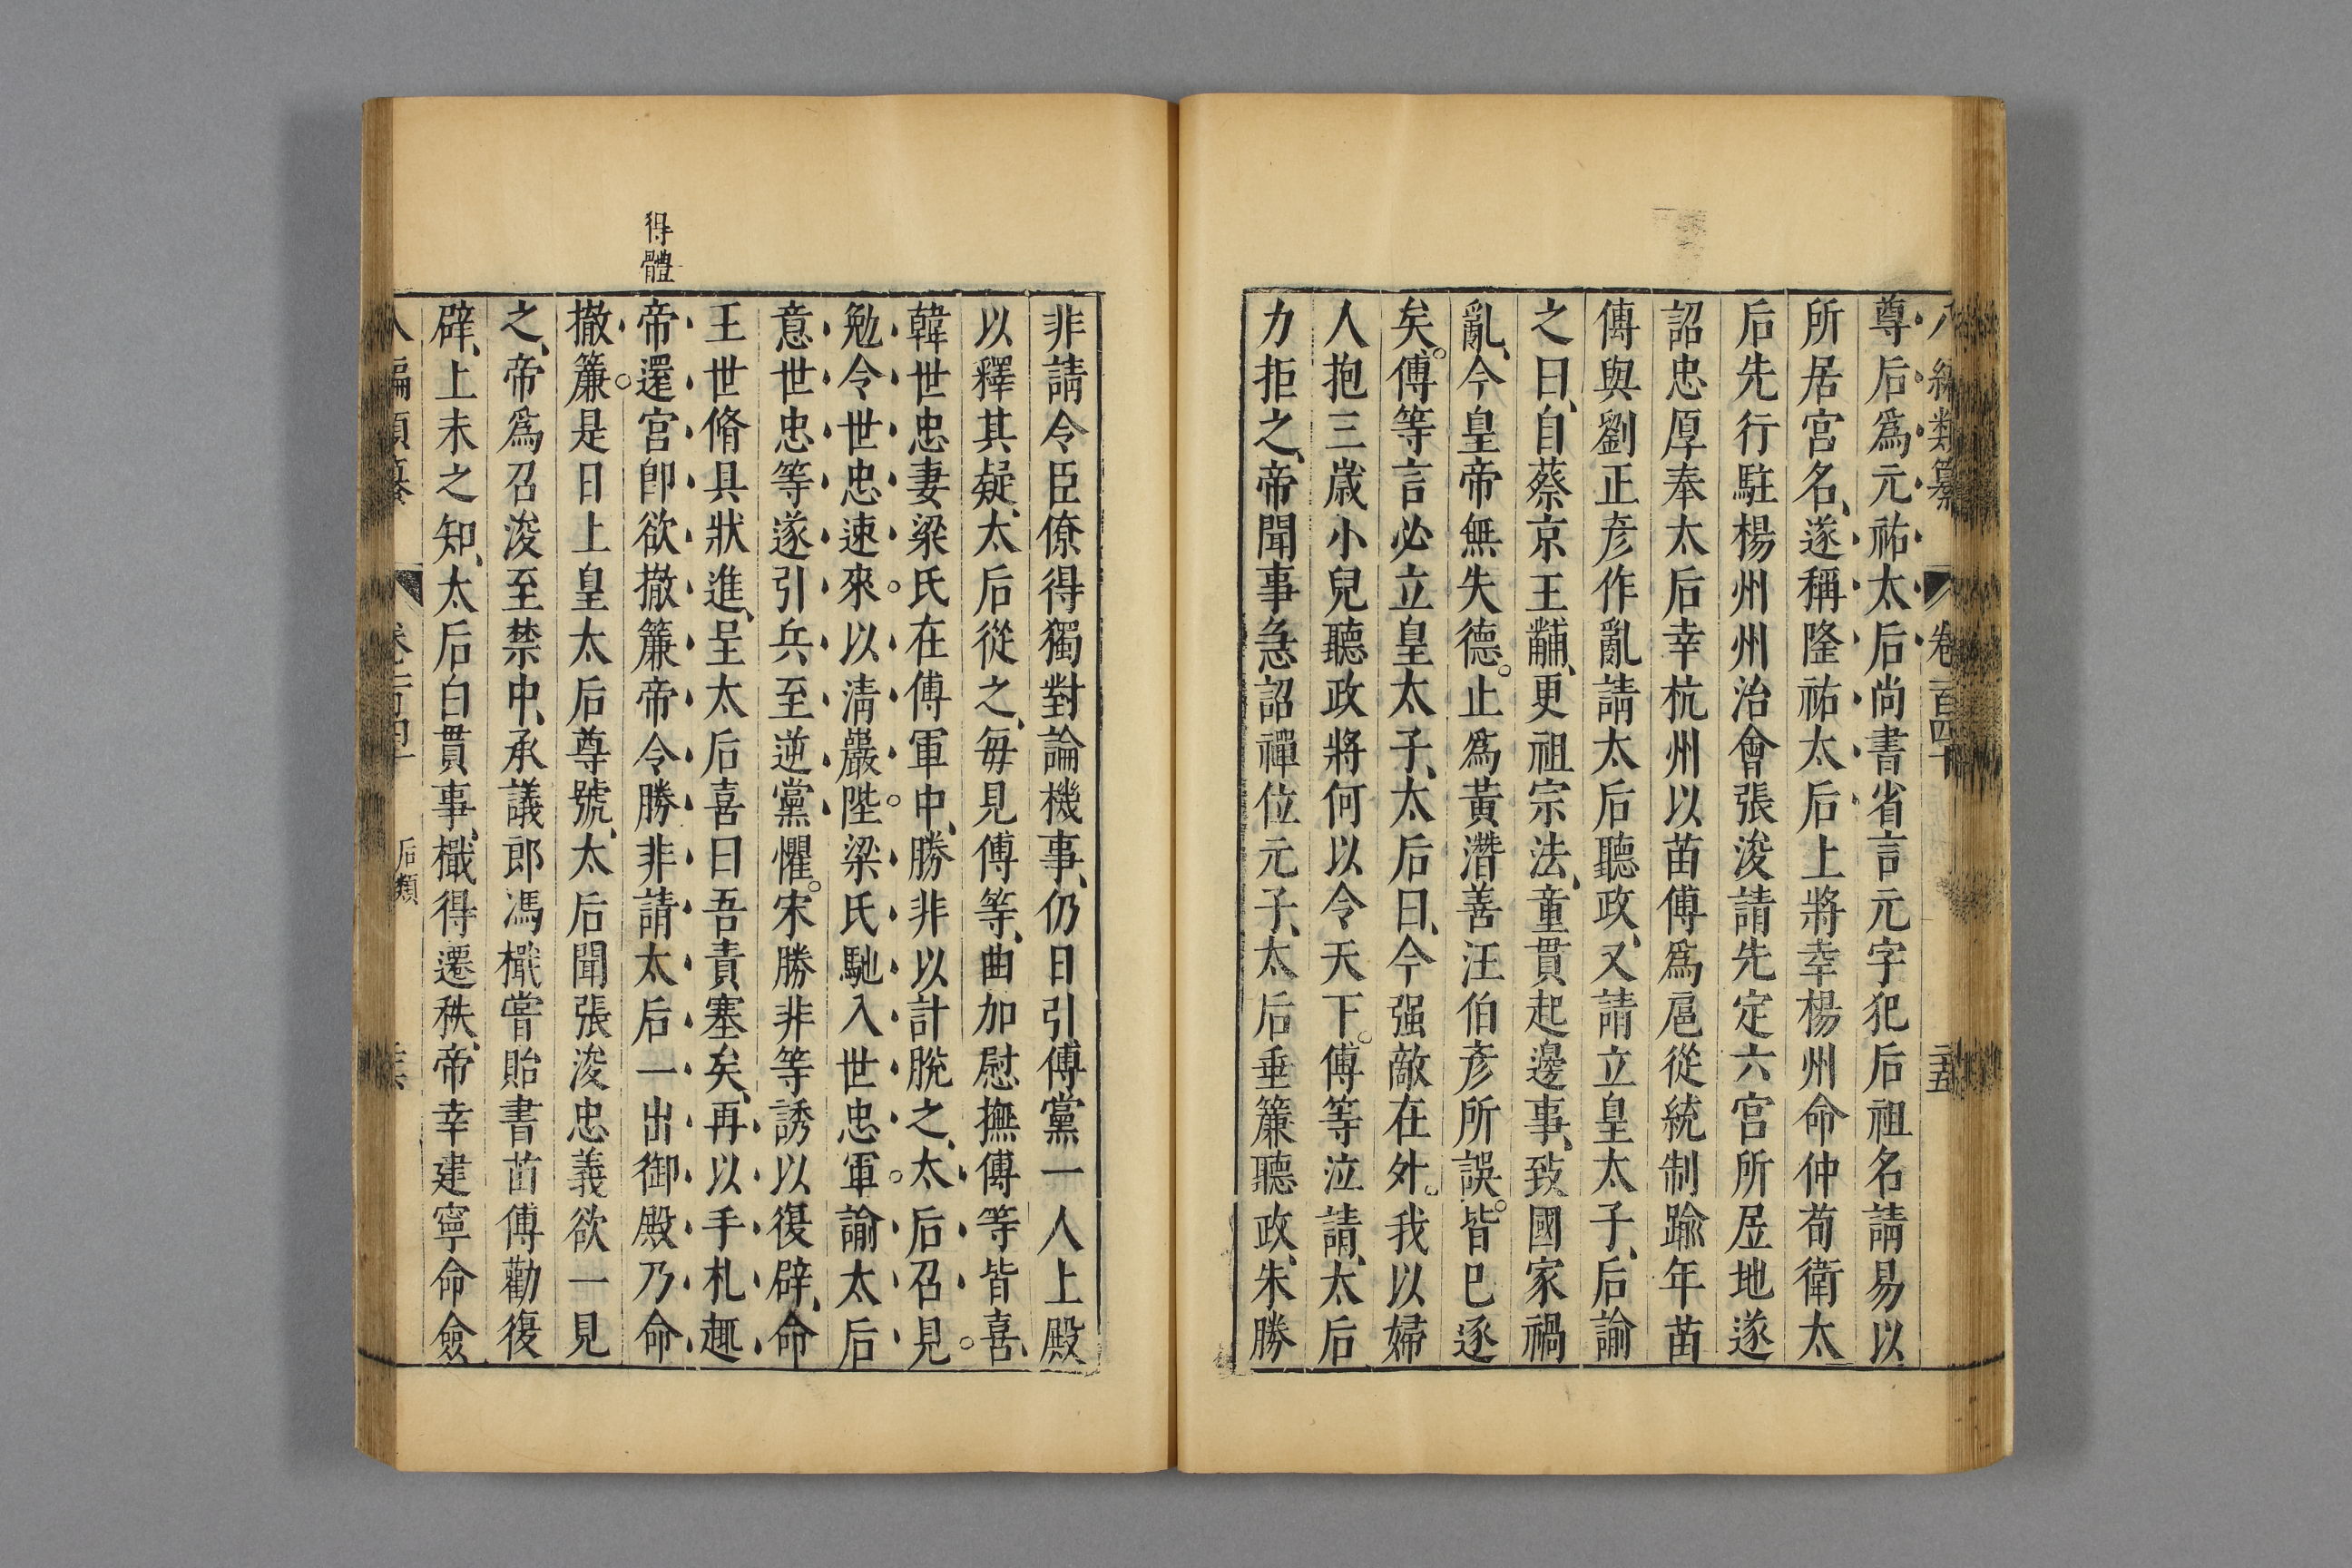 八編類纂 卷一百四十 二五
尊后爲元祐太后尚書省言元字犯后祖名請易以
所居宮名、遂稱隆祐太后上將幸楊州命仲荀衛太
后先行駐楊州州治會張浚請先定六宮所居地遂
詔忠厚奉太后幸杭州以苗傅爲扈從統制踰年苗
傅與劉正彥作亂請太后聽政、又請立皇太子、后諭
之曰、自蔡京王黼、更祖宗法、童貫起邊事、致國家禍
亂、今皇帝無失德。止爲黃潛善汪伯彥所誤。皆巳逐
矣。傅等言必立皇太子、太后曰、今强敵在外。我以婦
人抱三歲小兒聽政將何以令天下。傅等泣請、太后
力拒之、帝聞事急詔禪位元子、太后垂簾聽政、朱勝
非請令臣僚得獨對論機事、仍日引傅黨一人上殿
以釋其疑、太后從之、每見傅等、曲加慰撫傅等皆喜、
韓世忠妻梁氏在傅軍中、勝非以計脫之、太后召見。
勉令世忠速來。以淸巖陛。梁氏馳入世忠軍。諭太后
意世忠等遂引兵至逆黨懼。宋勝非等誘以復辟、命
王世脩具狀進、呈太后喜曰吾責塞矣、再以手札趣
得體
帝還宮卽欲撤簾帝令勝非請太后一出御殿乃命
撤簾。是日上皇太后尊號、太后聞張浚忠義欲一見
之、帝爲召浚至禁中、承議郎馮檝嘗貽書苗傅勸復
辟、上未之知、太后白貫事、檝得遷秩、帝幸建寧命僉
后類